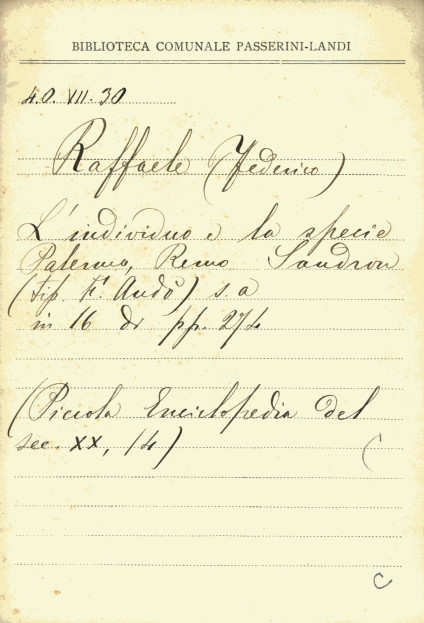 BIBLIOTECA COMUNALE PASSERINI-LANDI
4.0. VII. 30
Raffaele (Federico)
L'individuo e la specie
Palermo, Remo Sandron
(tip. F. Andò) s. a
in 16 di pp. 274
(Piccola Enciclopedia del
sec. XX, 14)
C
C